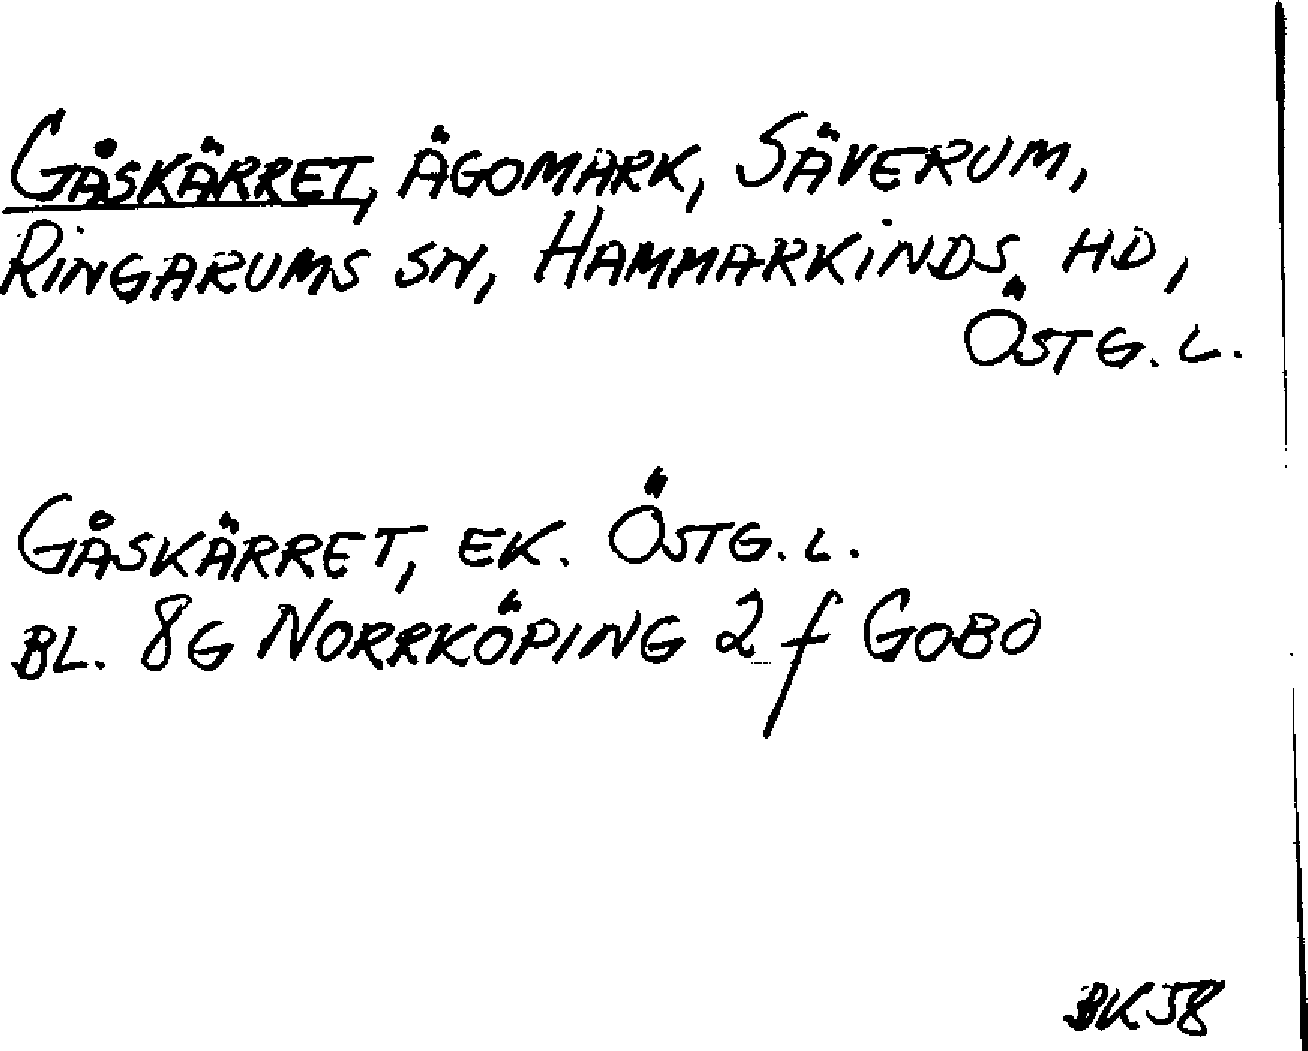 GÅSKÄRRET, ÄGOMARK, SÄVERUM,
RINGARUMS SN, HAMMARKINDS HD,
ÖSTG. L.
GÅSKÄRRET, EK. ÖSTG. L.
BL. 8G NORRKÖPING 2 f GOBO
BK58